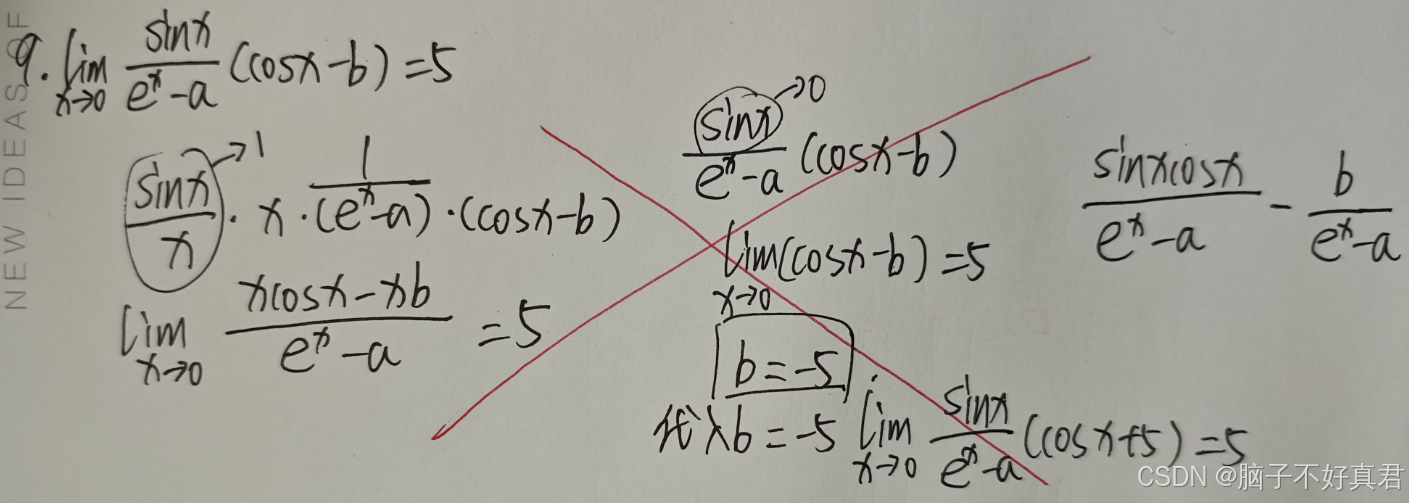 NEW IDEAS OF
9. lim x→0 sinx/(e^x-a) (cosx-b)=5
sinx/x →1 · x · 1/(e^x-a) · (cosx-b)
lim x→0 (xcosx-xb)/(e^x-a) =5
sinx →0/(e^x-a) (cosx-b)
lim x→0 (cosx-b)=5
b=-5
代入b=-5 lim x→0 sinx/(e^x-a) (cosx+5)=5
sinxcosx/(e^x-a) - b/(e^x-a)
CSDN @脑子不好真君